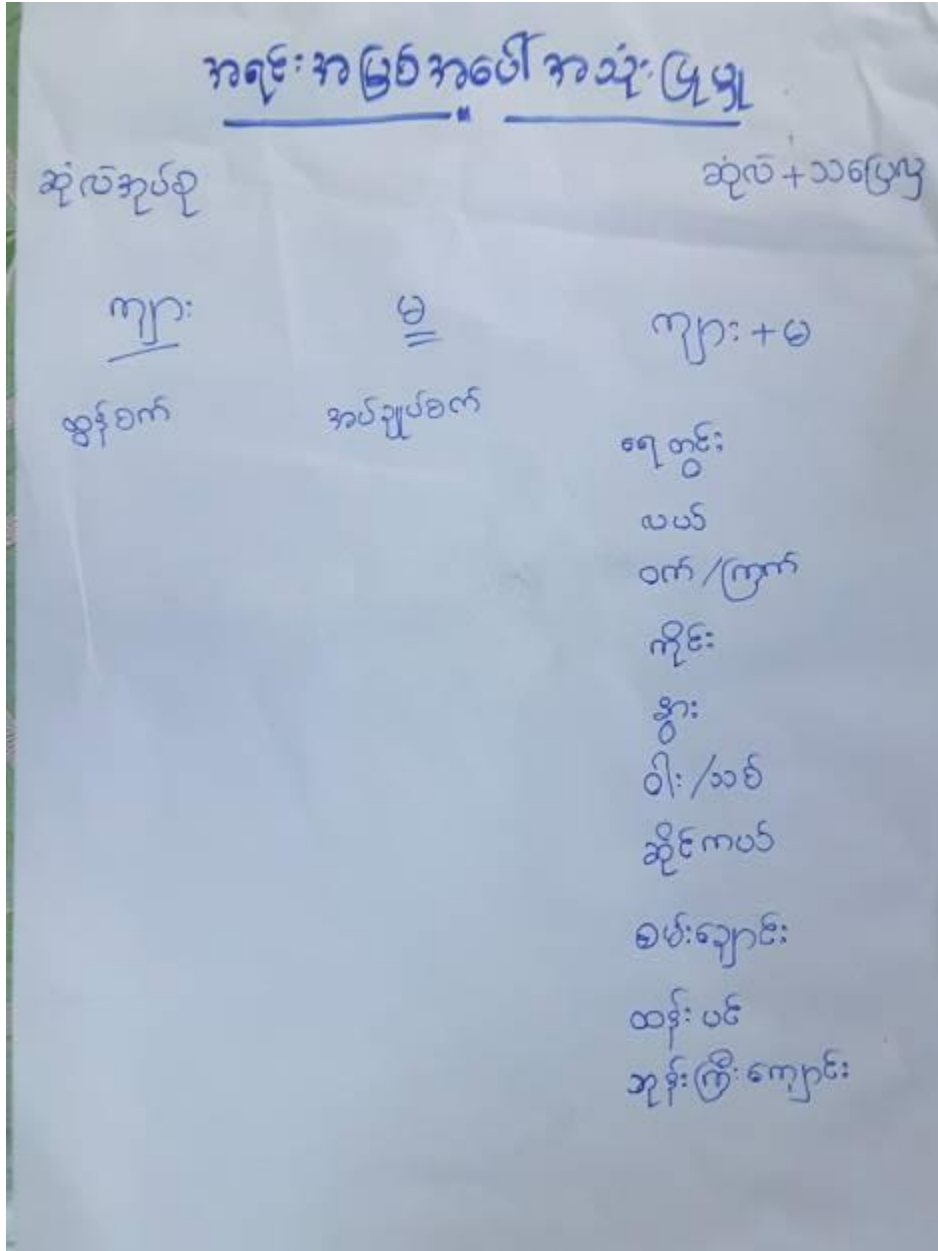 အရင်းအမြစ်အပေါ် အသုံးပြုမှု
ဆုံလဲအုပ်စု ဆုံလဲ + သပြေလှ
ကျား မ ကျား + မ
ထွန်စက် အပ်ချုပ်စက်
ရေတွင်း
လယ်
ဝက် / ကြက်
ကိုင်း
နွား
ဝါး / သစ်
ဆိုင်ကယ်
စမ်းချောင်း
ထန်းပင်
ဘုန်းကြီးကျောင်း